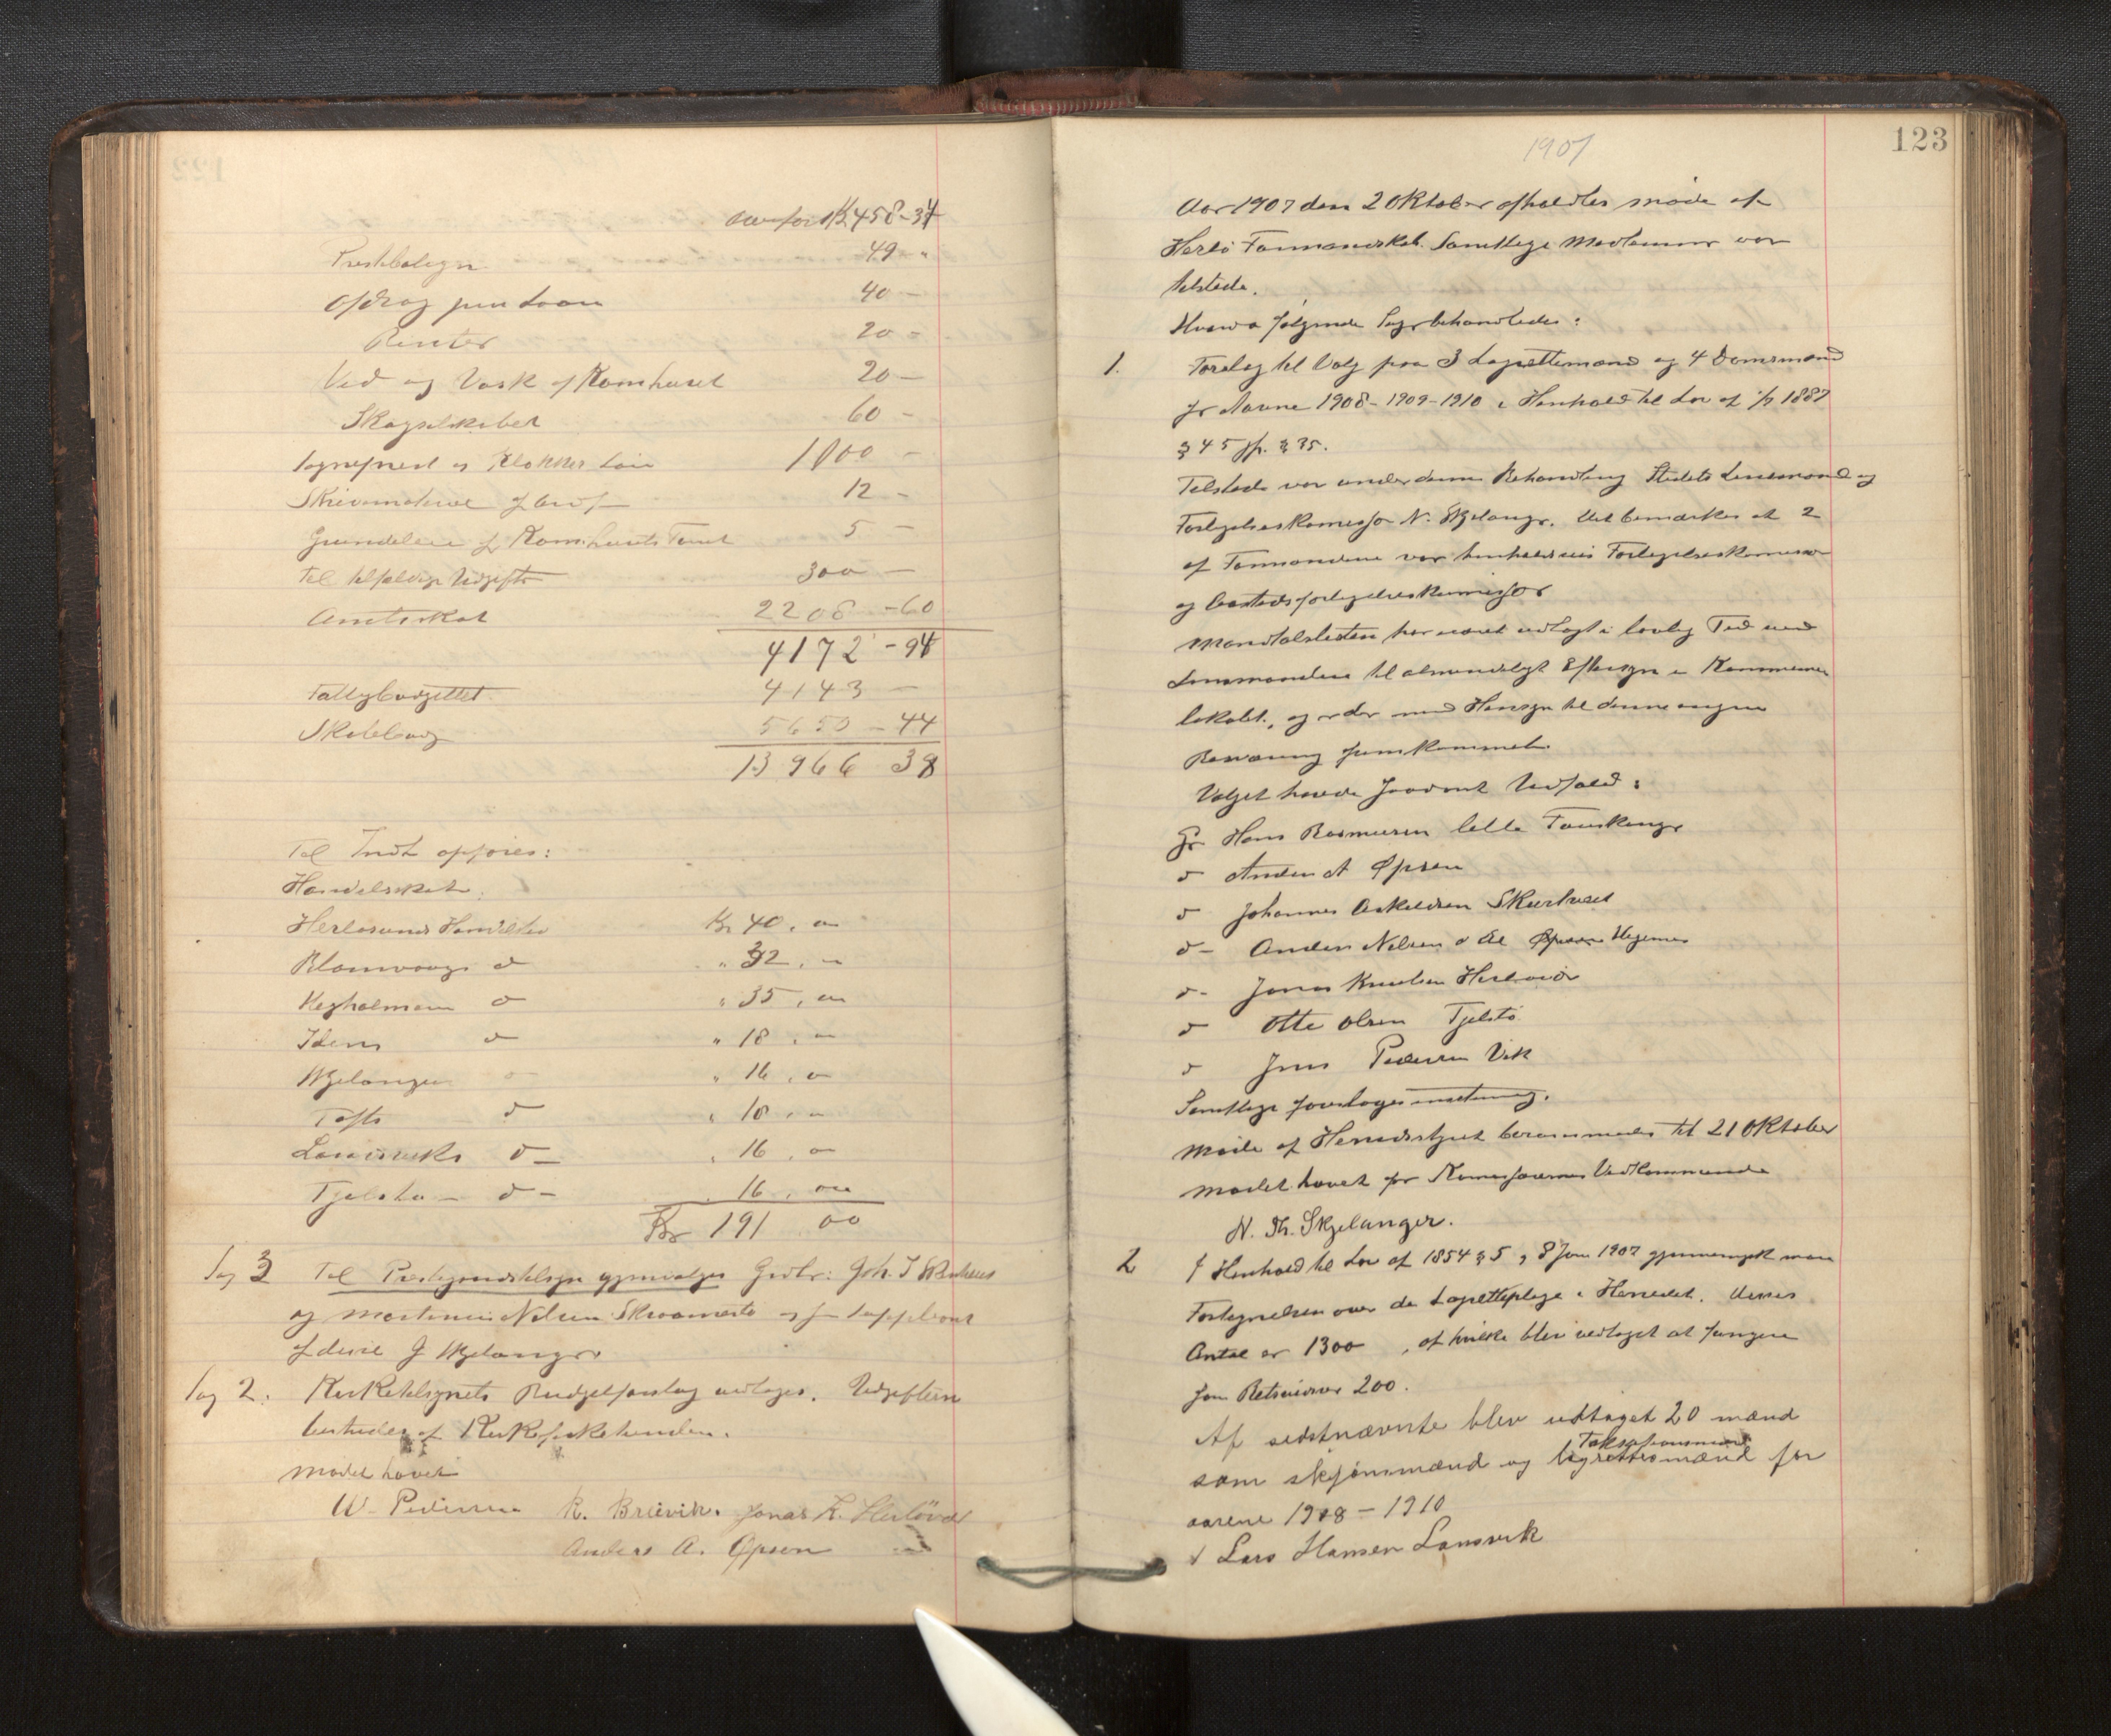 overført 458-34
Presteboligen 49 -
Afdrag paa Laan 40 -
Renter 20 -
Ved og Vask af Komhuset 20 -
Skogselskabet 60 -
Sogneprest og Klokker Løn 1100 -
Skrivemateriel 12 -
Grundeleie af Komhusets Tomt 5 -
Til tilfældige Udgifter 300 -
Amtsskat 2208 - 60
4172 - 94
Fattigbudgettet 4143 -
Skolebudg 5650 - 44
13966 38
Til Indt opføres:
Handelsskat:
Herløsunds Handelssted Kr 40, 00
Blomvaag d " 32, -
Kegholmen d " 35, 00
Idem d " 18, -
Skjelanger - " 16, 0
Tofte d " 18, -
Landsviks d - " 16, 00
Tjelstø - d - 16, 00
Kr 191 00
Sag 3 Til Prestegaardstilsyn gjenvalges Grdbr: Joh. J
og Mortinus Nilsen Skraamestø og som Suppleant
Skjelanger
Sag 2: Kirketilsynets Budgetforslag vedtages. Udgifterne
bestrides af Kirke
Mødet hævet
W. Pedersen R. Brievik. Jonas K. Herløvær
Anders A. Øpsen
123
1907
Aar 1907 den 2 Oktober afholdtes møde af
Herlø Formandskab. Samtlige Medlemmer var
tilstede.
Hvorda følgende Sager behandledes:
1. Forslag til Valg paa 3 Lagrettemænd og 4 Domsmænd
for Aarene 1908-1909-1910 i Henhold til Lov af 1/7 1887
§ 45 jfr. § 35.
Tilstede var under denne Behandling Stedets Lensmand og
Forligelseskomissær N. Skjelanger. Det bemærkes at 2
af Formændene var henholdsvis Forligelseskomissær
og forligelseskomissær
Mandtalslisten har været udlagt i lovlig Tid ved
Lensmanden til almindeligt Eftersyn i Kommune
lokalet, og er der med Hensyn til denne ingen
Bemærkning fremkommet.
Valget havde saadant Udfald:
Gr. Hans Rasmussen lille Fauskanger
d Anders A Øpsen
d Johannes Askeldsen Skurtveit
d - Anders Nilsen d æl Hegernes
d - Jonas Knudsen Herløvær
d Otte Olsen Tjelstø
d Jens Pedersen Vik
Samtlige foreslages enstemmig.
Møde af Herredsstyret berammedes til 21 Oktober
Mødet hævet for Komissærernes Vedkommende
N. Th. Skjelanger.
2 I Henhold til Lov af 1854 § 5, 8 Juni 1907 gjennemgik man
Fortegnelsen over de Lagrettepligtige i Herredet. Deres
Antal er 1300, af hvilke blev vedtaget at fungere
som Retsvidner 200.
Af sidstnævnte blev udtaget 20 mænd
som skjønsmænd og Taksationsmænd lagrettesmænd for
aarene 1908 - 1910
√ Lars Hansen Landsvik